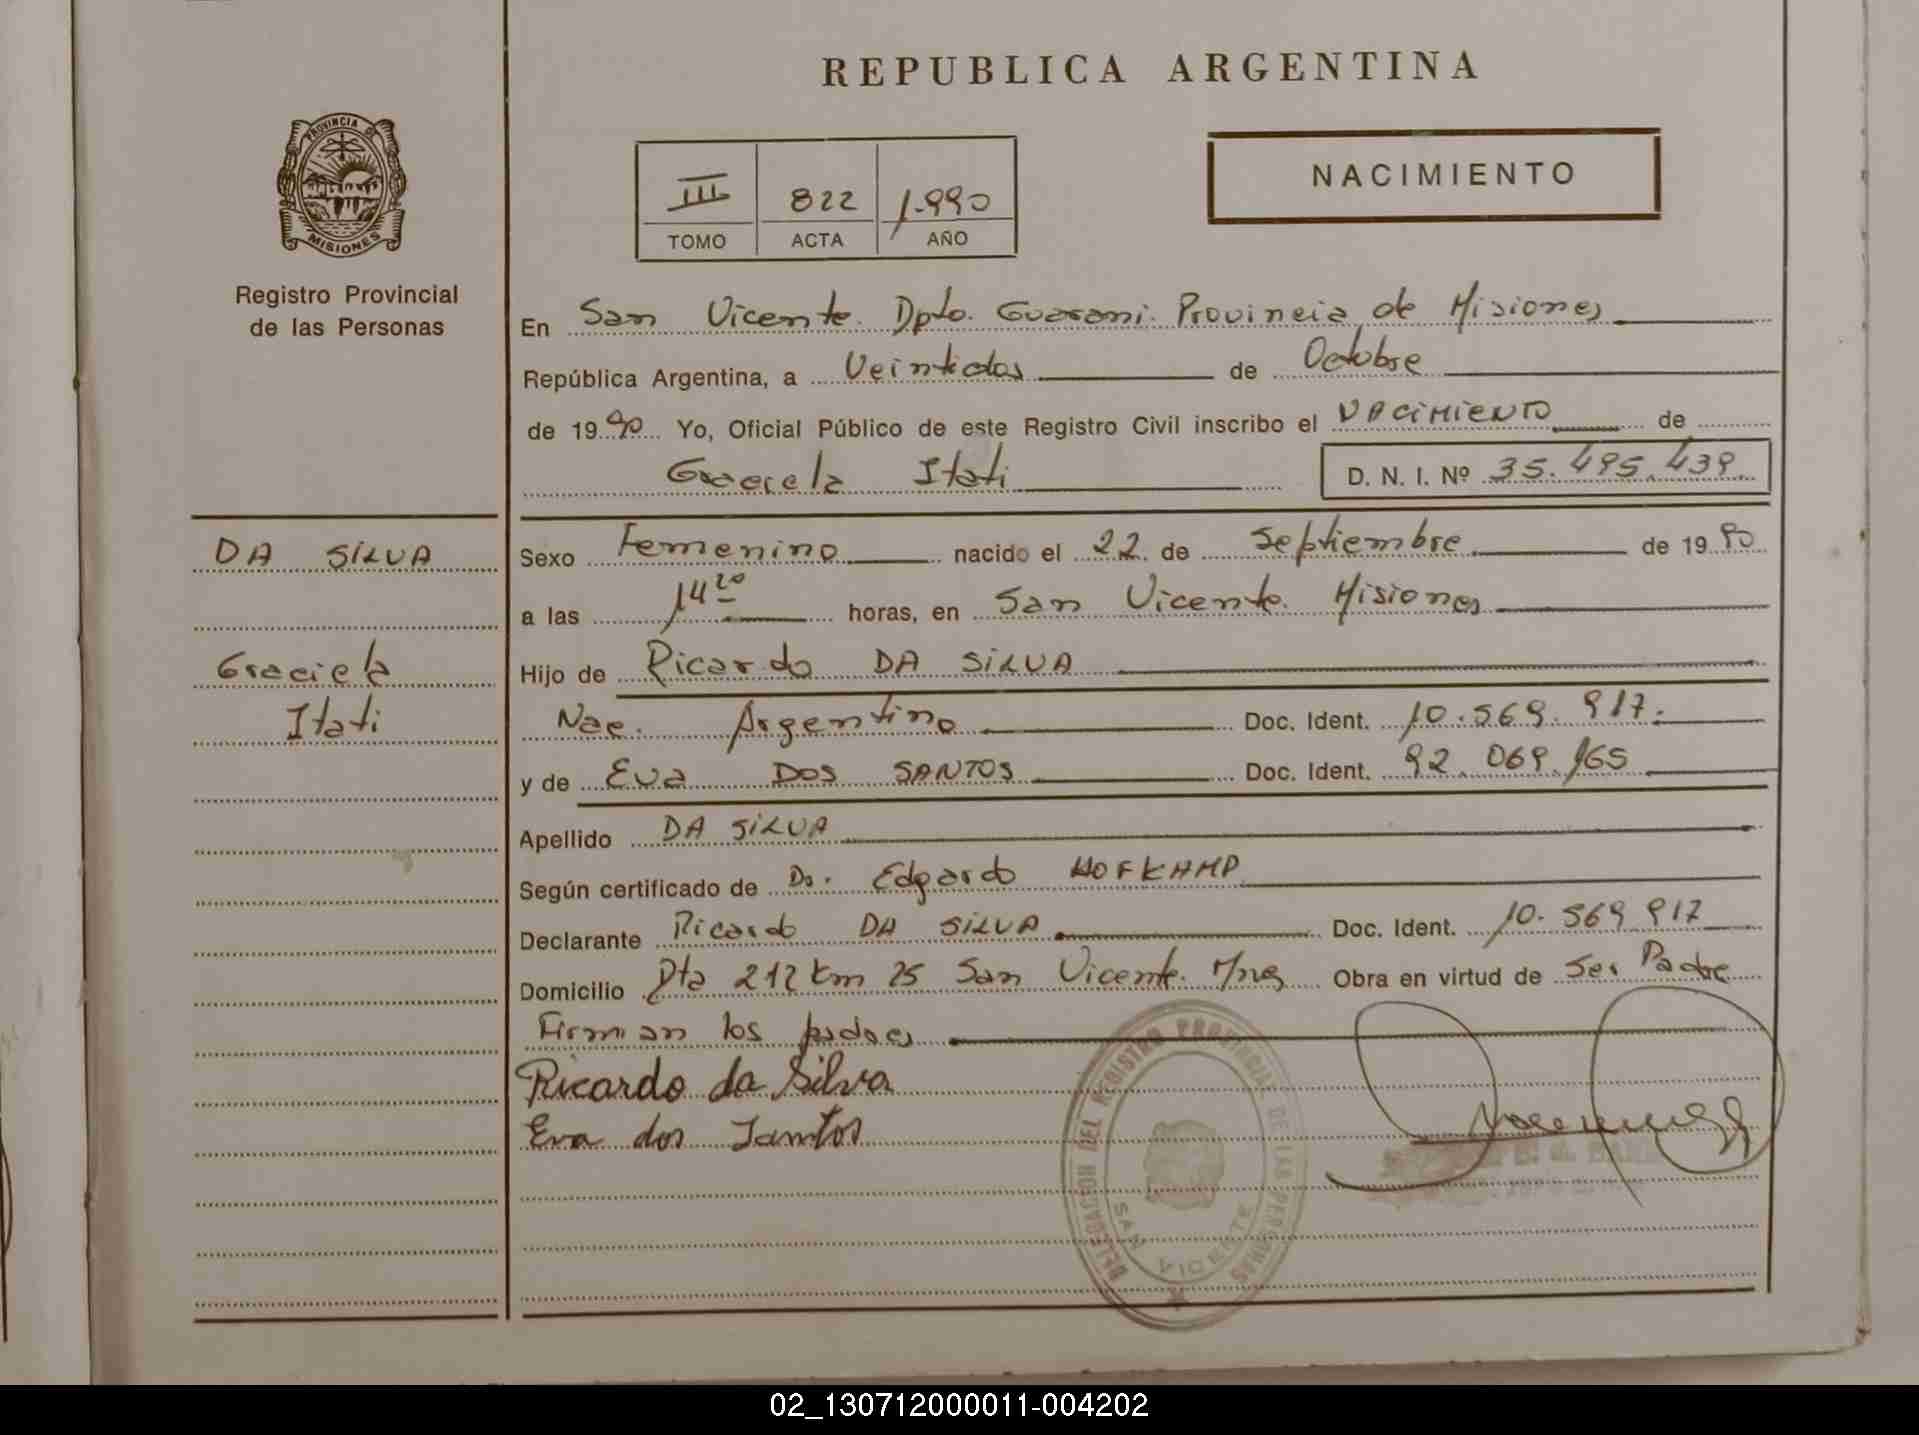 REPUBLICA ARGENTINA
PROVINCIA DE
MISIONES
Registro Provincial
de las Personas
III 822 1.990
TOMO ACTA AÑO
NACIMIENTO
En San Vicente. Dpto. Guarani. Provincia de Misiones
República Argentina, a Veintidos de Octubre
de 1990 Yo, Oficial Público de este Registro Civil inscribo el NACIMIENTO de
Graciela Itati D. N. I. Nº 35.495.439
DA SILVA
Graciela
Itati
Sexo Femenino nacido el 22 de Septiembre de 1990
a las 14 20 horas, en San Vicente. Misiones
Hijo de Ricardo DA SILVA
Nac. Argentino Doc. Ident. 10.569.917.
y de Eva DOS SANTOS Doc. Ident. 92.069.165
Apellido DA SILVA
Según certificado de Dr. Edgardo HOFKAMP
Declarante Ricardo DA SILVA Doc. Ident. 10.569.917
Domicilio Rta 212 Km 25 San Vicente. Mnes Obra en virtud de Ser Padre
Firman los padres
Ricardo da Silva
Eva dos Santos
DELEGACION DEL REGISTRO PROVINCIAL DE LAS PERSONAS
SAN VICENTE
02_130712000011-004202